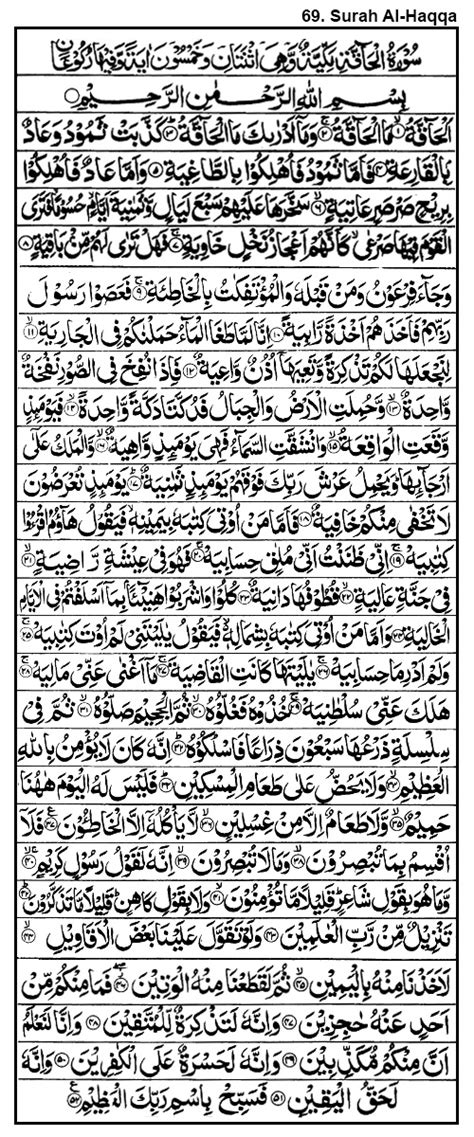 69. Surah Al-Haqqa
سُوْرَةُ الْحَآقَّةِ مَكِّيَّةٌ وَّهِيَ اثْنَتَانِ وَخَمْسُوْنَ اٰيَةً وَّفِيْهَا رُكُوْعَانِ
بِسْمِ اللّٰهِ الرَّحْمٰنِ الرَّحِيْمِ
اَلْحَآقَّةُ ۙ﴿۱﴾ مَا الْحَآقَّةُ ۚ﴿۲﴾ وَمَاۤ اَدْرٰىكَ مَا الْحَآقَّةُ ؕ﴿۳﴾ كَذَّبَتْ ثَمُوْدُ وَعَادٌۢ
بِالْقَارِعَةِ ﴿۴﴾ فَاَمَّا ثَمُوْدُ فَاُهْلِكُوْا بِالطَّاغِيَةِ ﴿۵﴾ وَاَمَّا عَادٌ فَاُهْلِكُوْا
بِرِيْحٍ صَرْصَرٍ عَاتِيَةٍ ۙ﴿۶﴾ سَخَّرَهَا عَلَيْهِمْ سَبْعَ لَيَالٍ وَّثَمٰنِيَةَ اَيَّامٍ ۙ حُسُوْمًا فَتَرَى
الْقَوْمَ فِيْهَا صَرْعٰى ۙ كَاَنَّهُمْ اَعْجَازُ نَخْلٍ خَاوِيَةٍ ۚ﴿۷﴾ فَهَلْ تَرٰى لَهُمْ مِّنْۢ بَاقِيَةٍ ﴿۸﴾
وَجَآءَ فِرْعَوْنُ وَمَنْ قَبْلَهٗ وَالْمُؤْتَفِكٰتُ بِالْخَاطِئَةِ ۚ﴿۹﴾ فَعَصَوْا رَسُوْلَ
رَبِّهِمْ فَاَخَذَهُمْ اَخْذَةً رَّابِيَةً ﴿۱۰﴾ اِنَّا لَمَّا طَغَا الْمَآءُ حَمَلْنٰكُمْ فِى الْجَارِيَةِ ۙ﴿۱۱﴾
لِنَجْعَلَهَا لَكُمْ تَذْكِرَةً وَّتَعِيَهَاۤ اُذُنٌ وَّاعِيَةٌ ﴿۱۲﴾ فَاِذَا نُفِخَ فِى الصُّوْرِ نَفْخَةٌ
وَّاحِدَةٌ ۙ﴿۱۳﴾ وَّحُمِلَتِ الْاَرْضُ وَالْجِبَالُ فَدُكَّتَا دَكَّةً وَّاحِدَةً ۙ﴿۱۴﴾ فَيَوْمَئِذٍ
وَّقَعَتِ الْوَاقِعَةُ ۙ﴿۱۵﴾ وَانْشَقَّتِ السَّمَآءُ فَهِىَ يَوْمَئِذٍ وَّاهِيَةٌ ۙ﴿۱۶﴾ وَّالْمَلَكُ عَلٰۤى
اَرْجَآئِهَا ؕ وَيَحْمِلُ عَرْشَ رَبِّكَ فَوْقَهُمْ يَوْمَئِذٍ ثَمٰنِيَةٌ ؕ﴿۱۷﴾ يَوْمَئِذٍ تُعْرَضُوْنَ
لَا تَخْفٰى مِنْكُمْ خَافِيَةٌ ﴿۱۸﴾ فَاَمَّا مَنْ اُوْتِىَ كِتٰبَهٗ بِيَمِيْنِهٖ ۙ فَيَقُوْلُ هَآؤُمُ اقْرَءُوْا
كِتٰبِيَهْ ۚ﴿۱۹﴾ اِنِّىْ ظَنَنْتُ اَنِّىْ مُلٰقٍ حِسَابِيَهْ ۚ﴿۲۰﴾ فَهُوَ فِىْ عِيْشَةٍ رَّاضِيَةٍ ۙ﴿۲۱﴾
فِىْ جَنَّةٍ عَالِيَةٍ ۙ﴿۲۲﴾ قُطُوْفُهَا دَانِيَةٌ ﴿۲۳﴾ كُلُوْا وَاشْرَبُوْا هَنِيْٓئًۢا بِمَاۤ اَسْلَفْتُمْ فِى الْاَيَّامِ
الْخَالِيَةِ ﴿۲۴﴾ وَاَمَّا مَنْ اُوْتِىَ كِتٰبَهٗ بِشِمَالِهٖ ۙ فَيَقُوْلُ يٰلَيْتَنِىْ لَمْ اُوْتَ كِتٰبِيَهْ ۚ﴿۲۵﴾
وَلَمْ اَدْرِ مَا حِسَابِيَهْ ۚ﴿۲۶﴾ يٰلَيْتَهَا كَانَتِ الْقَاضِيَةَ ۚ﴿۲۷﴾ مَاۤ اَغْنٰى عَنِّىْ مَالِيَهْ ۚ﴿۲۸﴾
هَلَكَ عَنِّىْ سُلْطٰنِيَهْ ۚ﴿۲۹﴾ خُذُوْهُ فَغُلُّوْهُ ۙ﴿۳۰﴾ ثُمَّ الْجَحِيْمَ صَلُّوْهُ ۙ﴿۳۱﴾ ثُمَّ فِىْ
سِلْسِلَةٍ ذَرْعُهَا سَبْعُوْنَ ذِرَاعًا فَاسْلُكُوْهُ ؕ﴿۳۲﴾ اِنَّهٗ كَانَ لَا يُؤْمِنُ بِاللّٰهِ
الْعَظِيْمِ ۙ﴿۳۳﴾ وَلَا يَحُضُّ عَلٰى طَعَامِ الْمِسْكِيْنِ ؕ﴿۳۴﴾ فَلَيْسَ لَهُ الْيَوْمَ هٰهُنَا
حَمِيْمٌ ۙ﴿۳۵﴾ وَّلَا طَعَامٌ اِلَّا مِنْ غِسْلِيْنٍ ۙ﴿۳۶﴾ لَّا يَاْكُلُهٗۤ اِلَّا الْخَاطِئُوْنَ ﴿۳۷﴾ فَلَاۤ
اُقْسِمُ بِمَا تُبْصِرُوْنَ ۙ﴿۳۸﴾ وَمَا لَا تُبْصِرُوْنَ ۙ﴿۳۹﴾ اِنَّهٗ لَقَوْلُ رَسُوْلٍ كَرِيْمٍ ۚ﴿۴۰﴾
وَّمَا هُوَ بِقَوْلِ شَاعِرٍ ؕ قَلِيْلًا مَّا تُؤْمِنُوْنَ ۙ﴿۴۱﴾ وَلَا بِقَوْلِ كَاهِنٍ ؕ قَلِيْلًا مَّا تَذَكَّرُوْنَ ؕ﴿۴۲﴾
تَنْزِيْلٌ مِّنْ رَّبِّ الْعٰلَمِيْنَ ﴿۴۳﴾ وَلَوْ تَقَوَّلَ عَلَيْنَا بَعْضَ الْاَقَاوِيْلِ ۙ﴿۴۴﴾
لَاَخَذْنَا مِنْهُ بِالْيَمِيْنِ ۙ﴿۴۵﴾ ثُمَّ لَقَطَعْنَا مِنْهُ الْوَتِيْنَ ﴿۴۶﴾ فَمَا مِنْكُمْ مِّنْ
اَحَدٍ عَنْهُ حٰجِزِيْنَ ﴿۴۷﴾ وَاِنَّهٗ لَتَذْكِرَةٌ لِّلْمُتَّقِيْنَ ﴿۴۸﴾ وَاِنَّا لَنَعْلَمُ
اَنَّ مِنْكُمْ مُّكَذِّبِيْنَ ﴿۴۹﴾ وَاِنَّهٗ لَحَسْرَةٌ عَلَى الْكٰفِرِيْنَ ﴿۵۰﴾ وَاِنَّهٗ
لَحَقُّ الْيَقِيْنِ ﴿۵۱﴾ فَسَبِّحْ بِاسْمِ رَبِّكَ الْعَظِيْمِ ﴿۵۲﴾